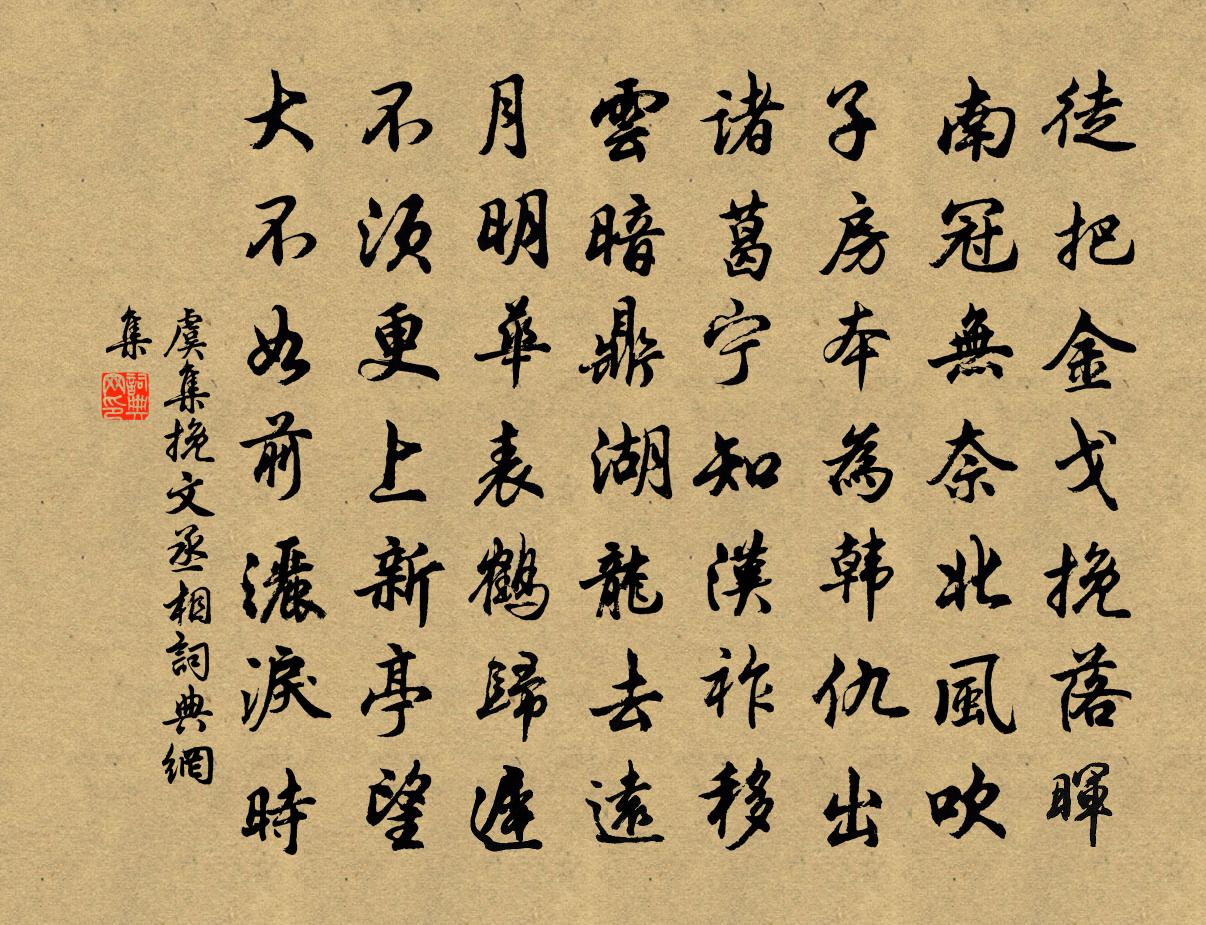 徒把金戈挽落暉
南冠無奈北風吹
子房本為韩仇出
诸葛宁知漢祚移
雲暗鼎湖龍去遠
月明華表鶴歸遲
不須更上新亭望
大不如前灑淚時
虞集挽文丞相詞典網
集
詞典網印